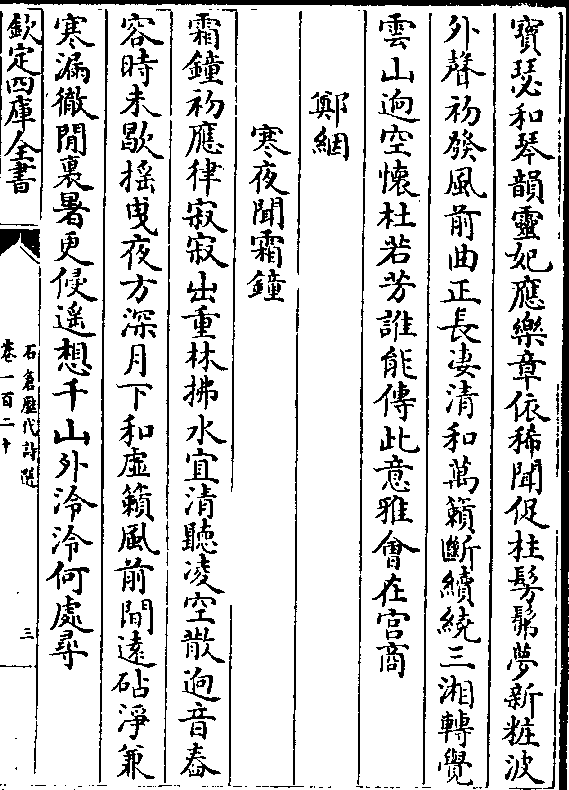 寶瑟和琴韻靈妃應樂章依稀聞促柱髣髴夢新粧波
外聲初發風前曲正長淒清和萬籟斷續繞三湘轉覺
雲山逈空懷杜若芳誰能傳此意雅會在宫商
鄭絪
寒夜聞霜鐘
霜鐘初應律寂寂出重林拂水宜清聽凌空散逈音舂
容時未歇摇曳夜方深月下和虛籟風前間遠砧淨兼
寒漏徹閒裏暑更侵遥想千山外泠泠何處尋
欽定四庫全書
石倉歷代詩選
卷一百二十
三